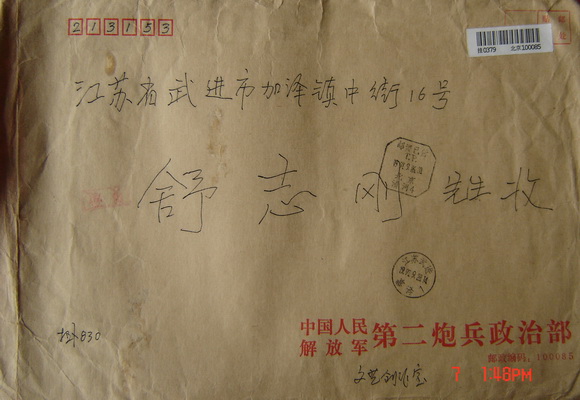 213153
挂0379 北京100085
江苏省武进市加泽镇中街16号
舒志刚先生收
挂830
中国人民解放军 第二炮兵政治部
邮政编码:100085
文艺创作室
7 1:48PM